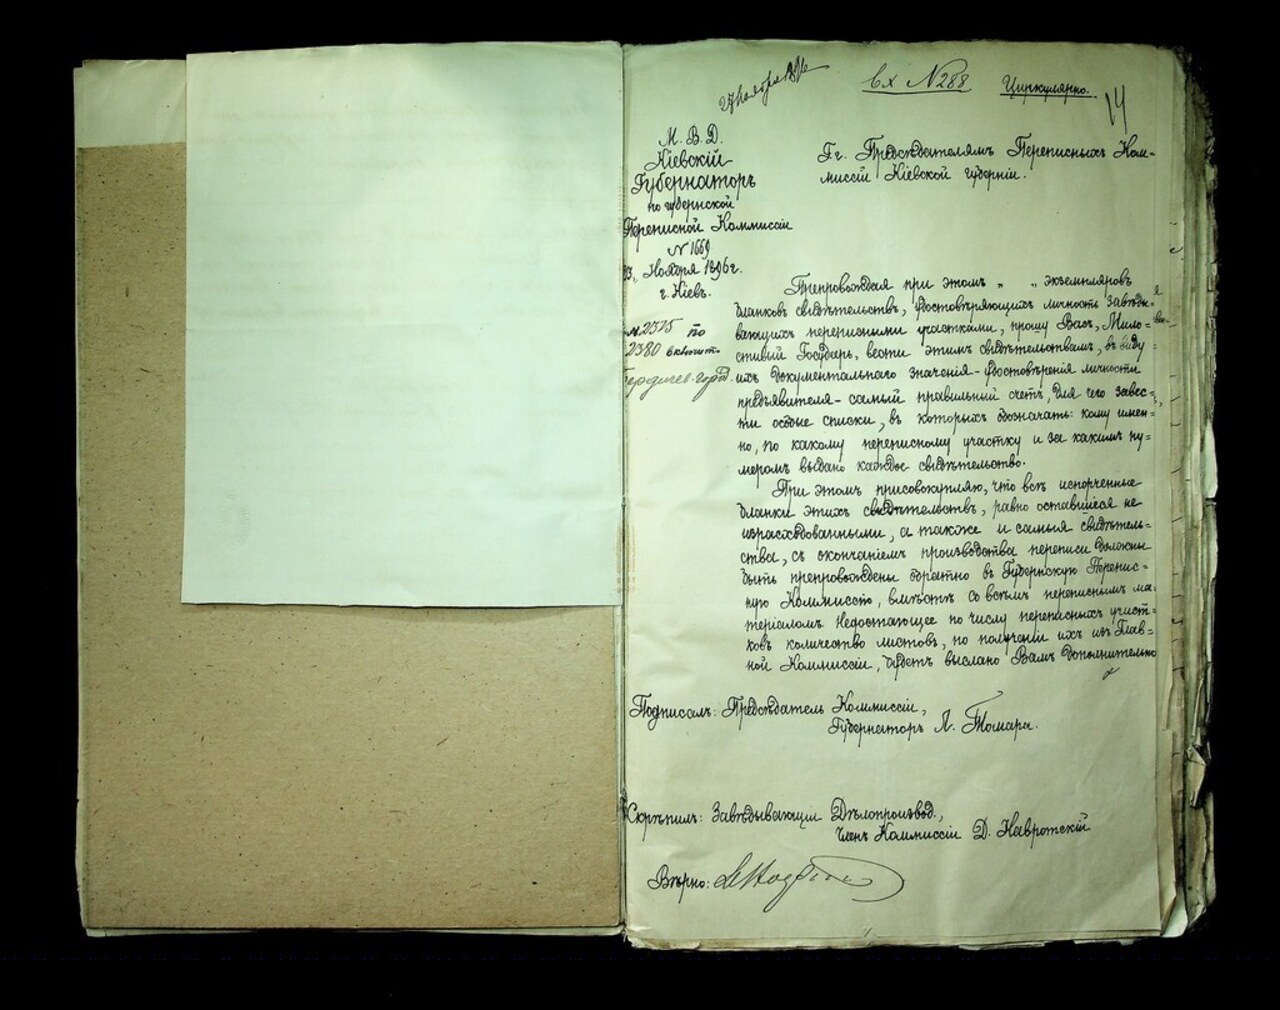 27 Ноября 1896
Вх №288
Циркулярно.
14
М. В. Д.
Кіевскій
Губернаторъ
по губернской
Переписной Коммиссіи
№ 1669
23 Ноября 1896 г.
г. Кіевъ.
№ 2375 по
2380 включит.
Бердичев. город.
Гг. Предсѣдателямъ Переписныхъ Ком-
миссій Кіевской губерніи.
Препровождая при этомъ „ „ экземпляровъ
бланковъ свидѣтельствъ, удостовѣряющихъ личность завѣды-
вающихъ переписными участками, прошу Васъ, Мило-
стивый Государь, вести этимъ свидѣтельствамъ, въ виду
ихъ документальнаго значенія - удостовѣренія личности
предъявителя - самый правильный счетъ, для чего завес-
ти особые списки, въ которыхъ обозначать: кому имен-
но, по какому переписному участку и за какимъ ну-
меромъ выдано каждое свидѣтельство.
При этомъ присовокупляю, что всѣ испорченные
бланки этихъ свидѣтельствъ, равно оставшіеся не
израсходованными, а также и самыя свидѣтель-
ства, съ окончаніемъ производства переписи должны
быть препровождены обратно въ Губернскую Перепис-
ную Коммиссію, вмѣстѣ со всѣмъ переписнымъ ма-
теріаломъ. Недостающее по числу переписныхъ участ-
ковъ количество листовъ, по полученіи ихъ изъ Глав-
ной Коммиссіи, будетъ выслано Вамъ дополнительно
Подписалъ: Предсѣдатель Коммиссіи,
Губернаторъ Л. Томара.
Скрѣпилъ: Завѣдывающій Дѣлопроизвод.,
Членъ Коммиссіи Д. Навротскій
Вѣрно: